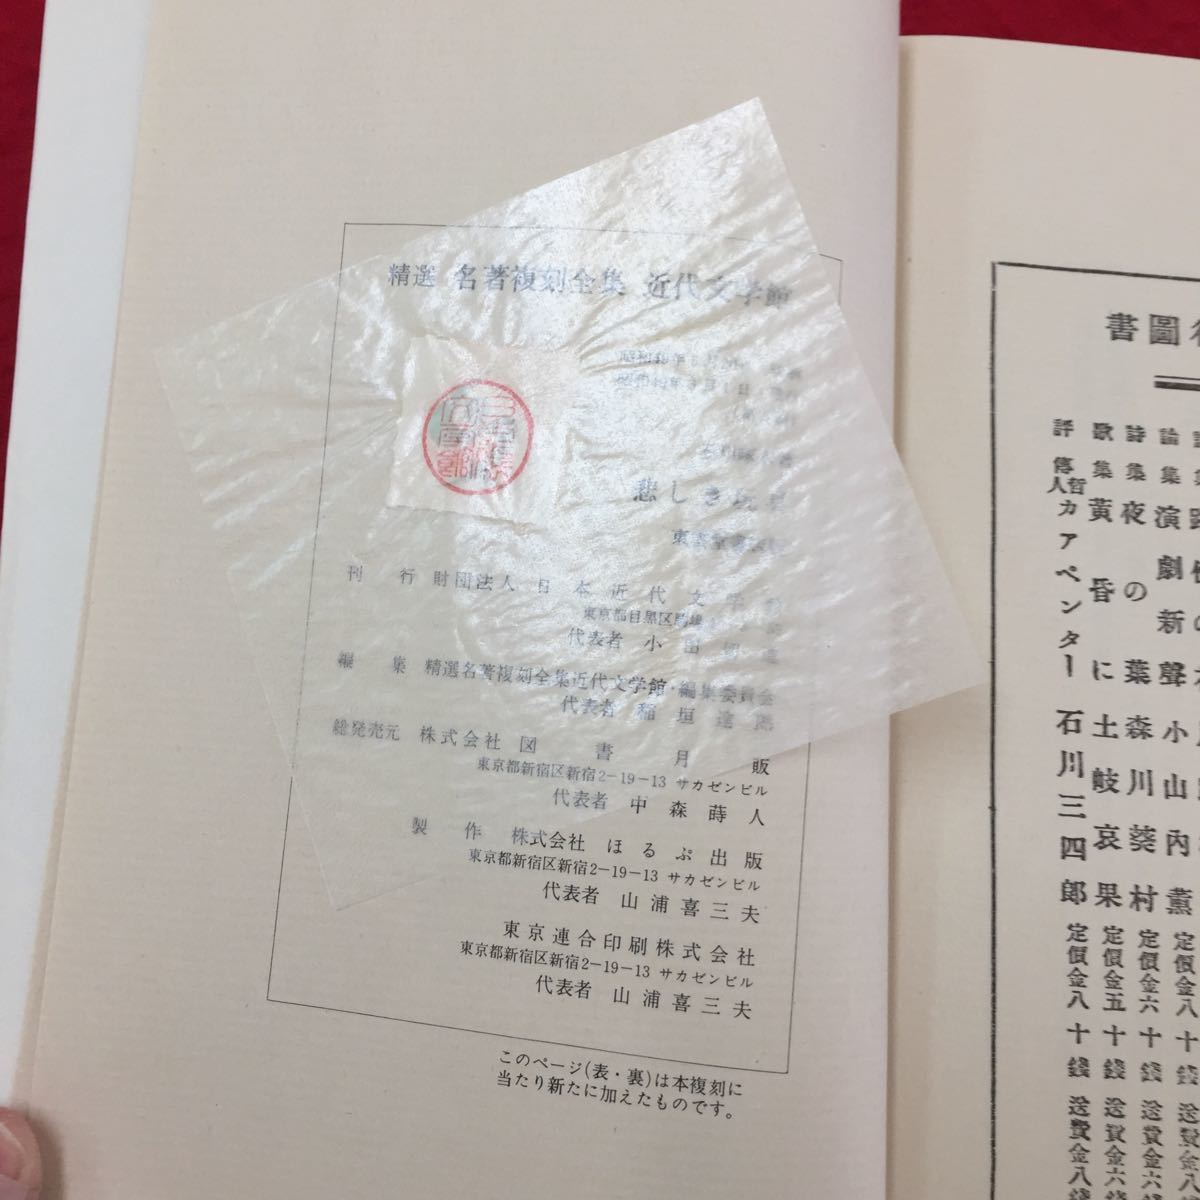 精選 名著複刻全集 近代文学館
悲しき
刊行 財団法人 日本近代文
東京都目黒区駒
代表者 小田
編集 精選名著複刻全集近代文学館・編集委員会
代表者 稲垣達郎
総発売元 株式会社 図書月販
東京都新宿区新宿2-19-13 サカゼンビル
代表者 中森蒔人
製作 株式会社 ほるぷ出版
東京都新宿区新宿2-19-13 サカゼンビル
代表者 山浦喜三夫
東京連合印刷株式会社
東京都新宿区新宿2-19-13 サカゼンビル
代表者 山浦喜三夫
このページ(表・裏)は本複刻に
当たり新たに加えたものです。
圖書
論集 演劇新聲 小山内薫 定價金八十錢 送費金
詩集 夜の葉 森川葵村 定價金六十錢 送費金六
歌集 黄昏に 土岐哀果 定價金五十錢 送費金六
評傳 哲人カアペンター 石川三四郎 定價金八十錢 送費金八錢